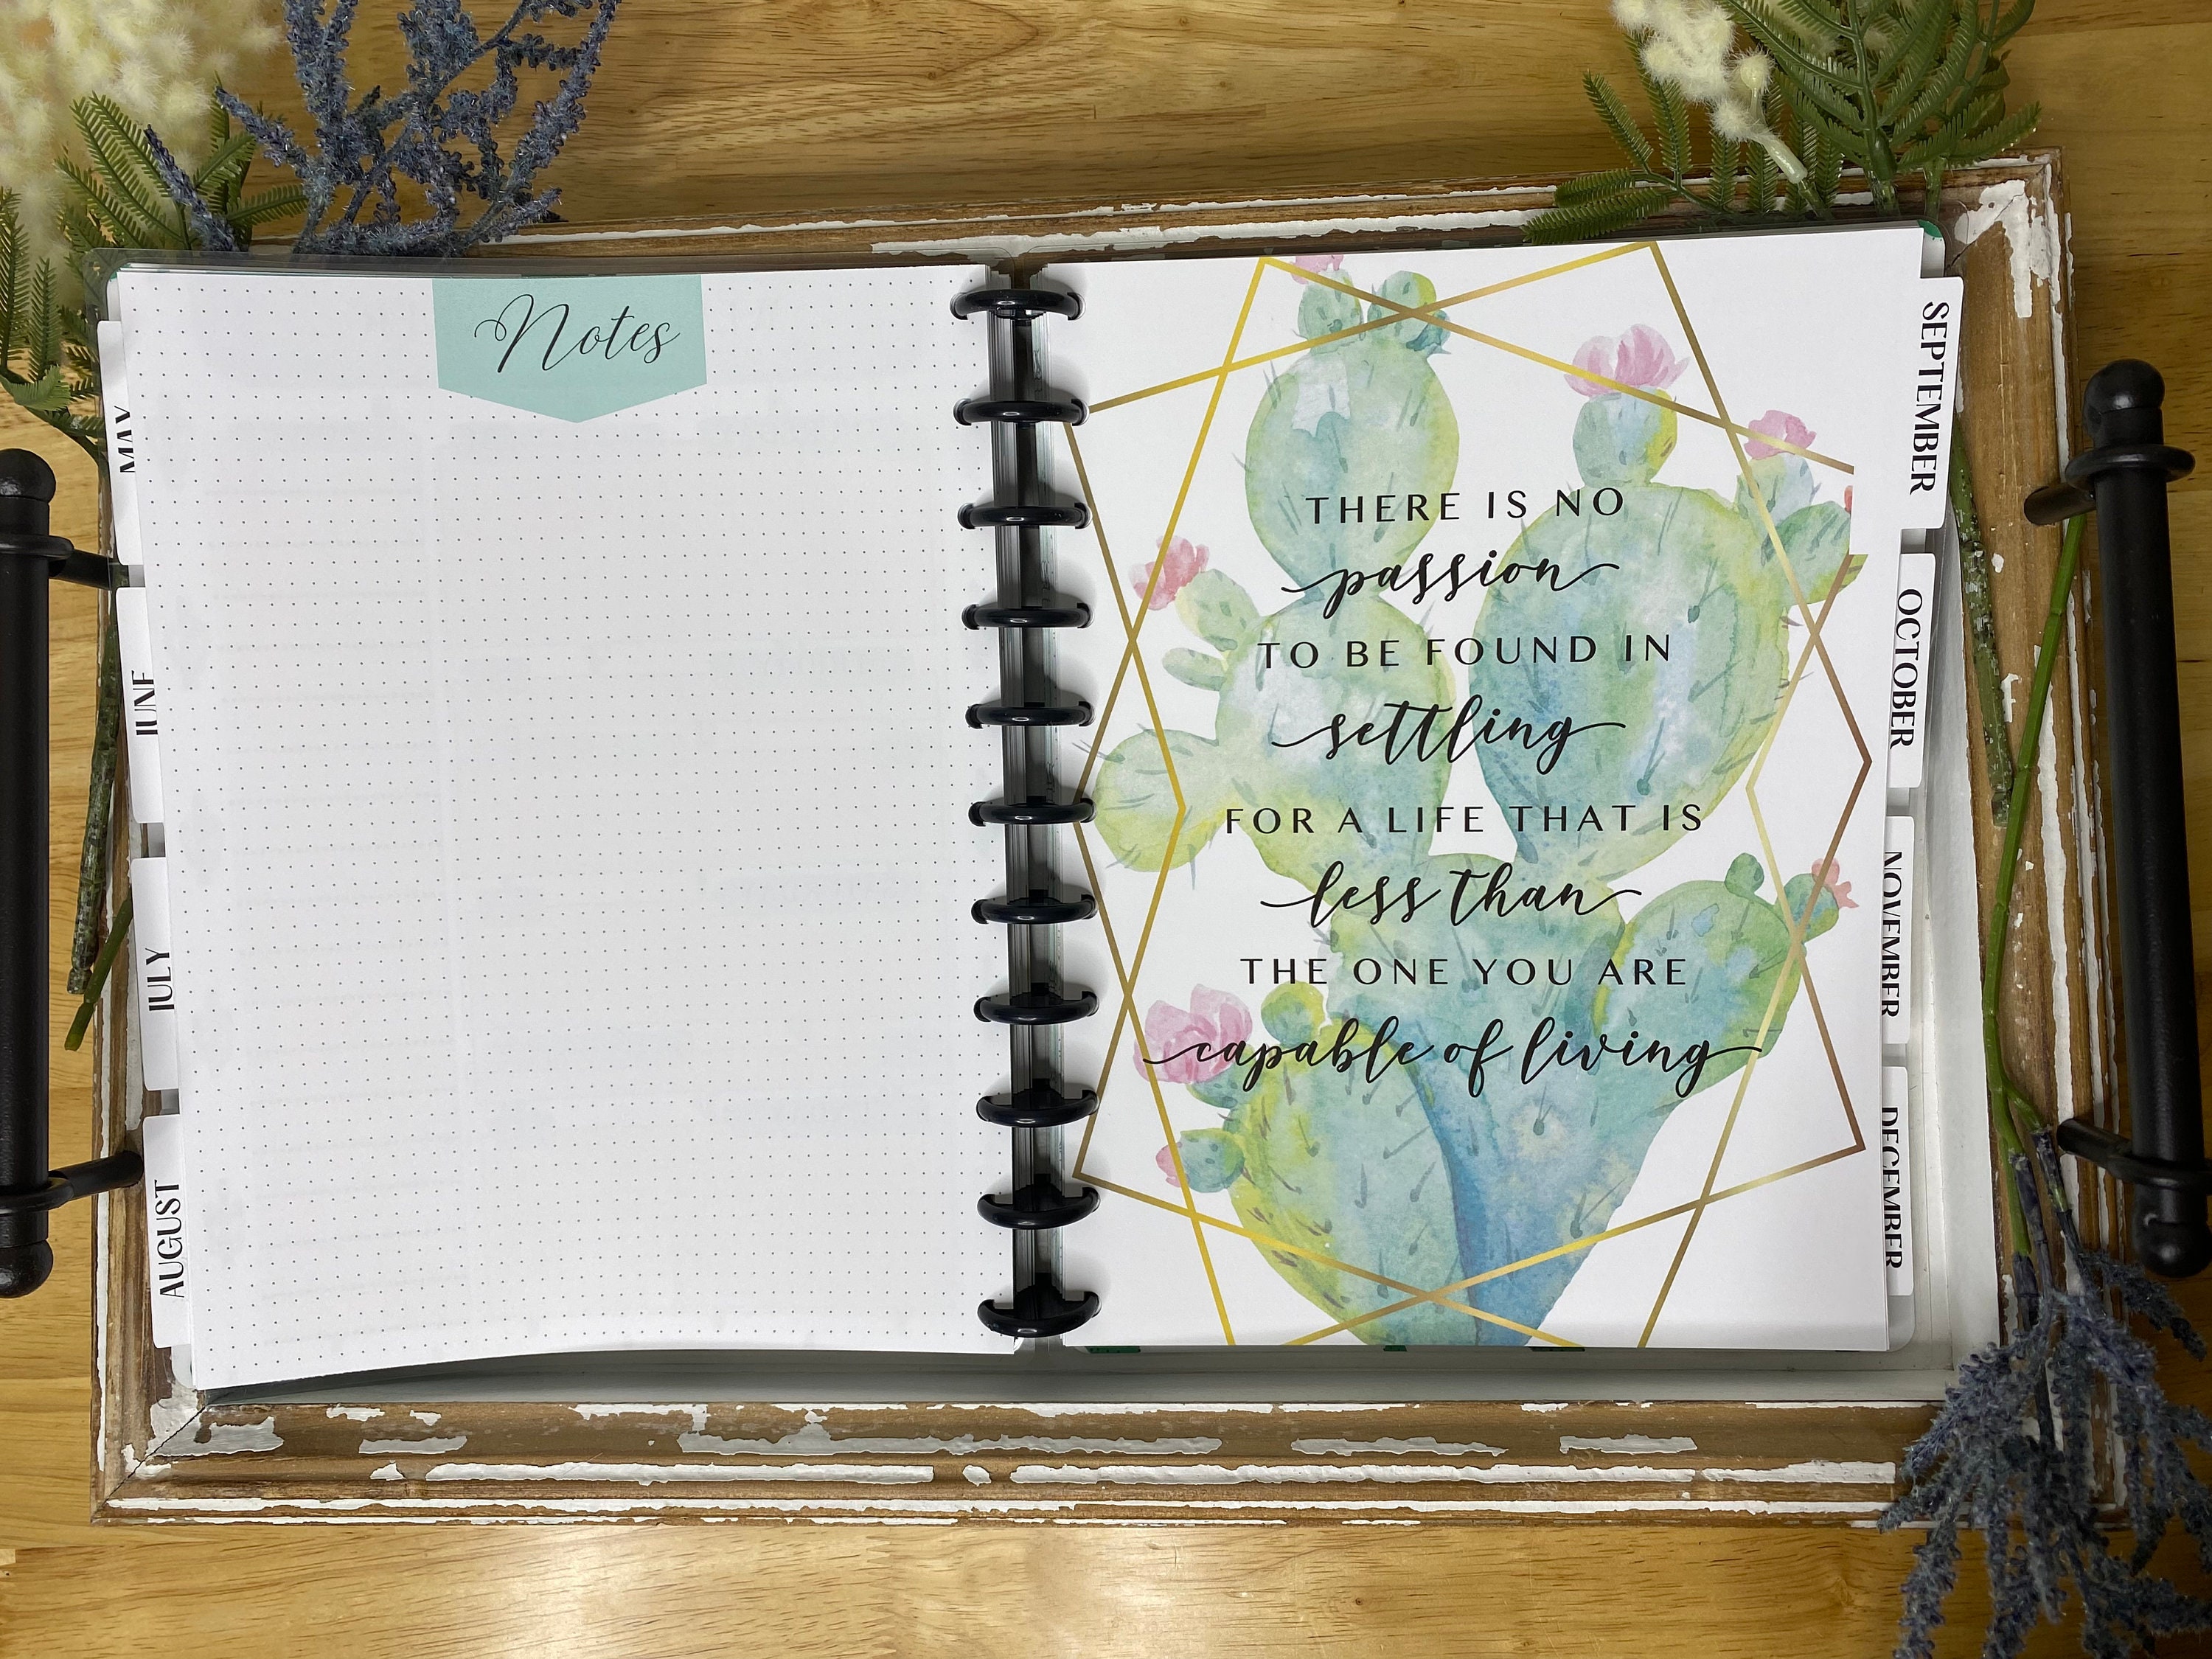 Notes
MAY
JUNE
JULY
AUGUST
THERE IS NO
passion
TO BE FOUND IN
settling
FOR A LIFE THAT IS
less than
THE ONE YOU ARE
capable of living
SEPTEMBER
OCTOBER
NOVEMBER
DECEMBER